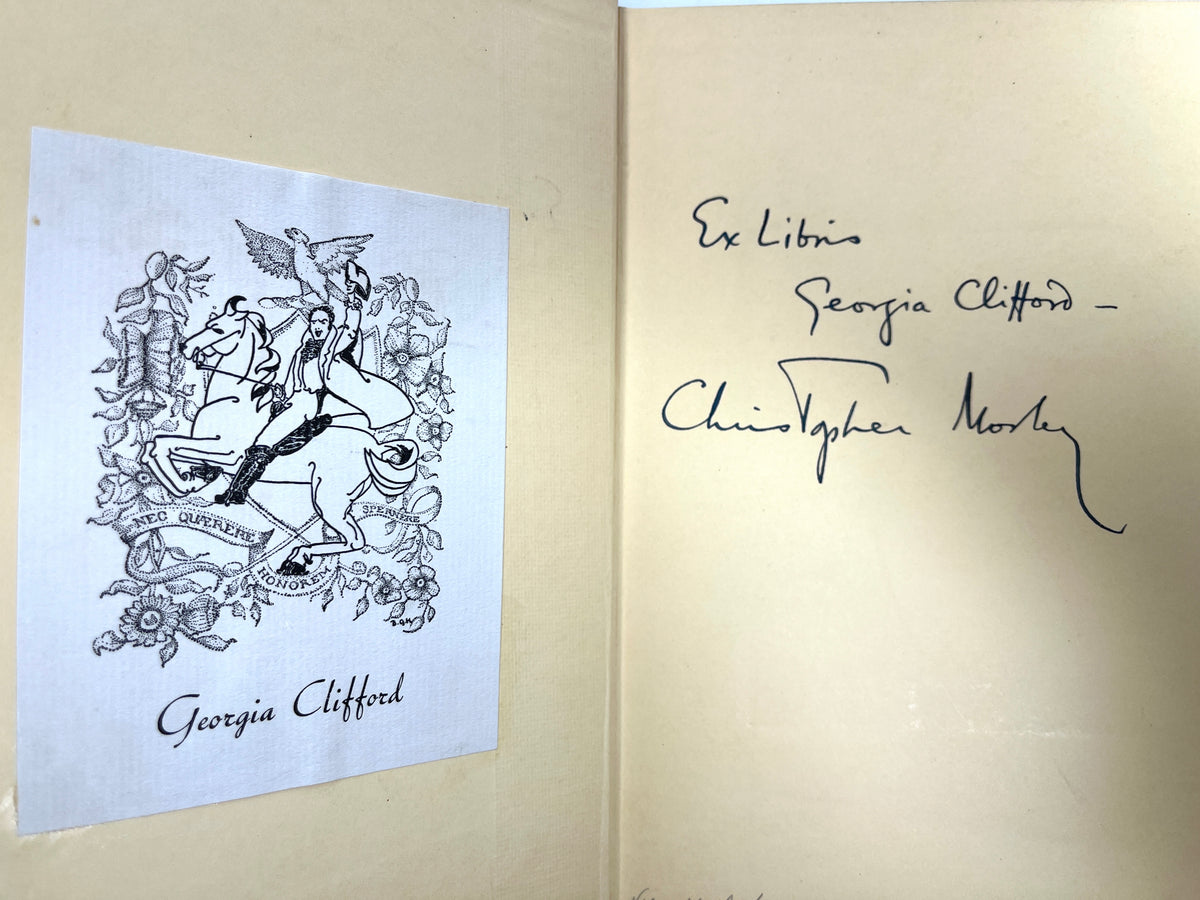 NEC QUÆRERE
SPERNERE
HONOREM
Georgia Clifford
Ex Libris
Georgia Clifford —
Christopher Morley